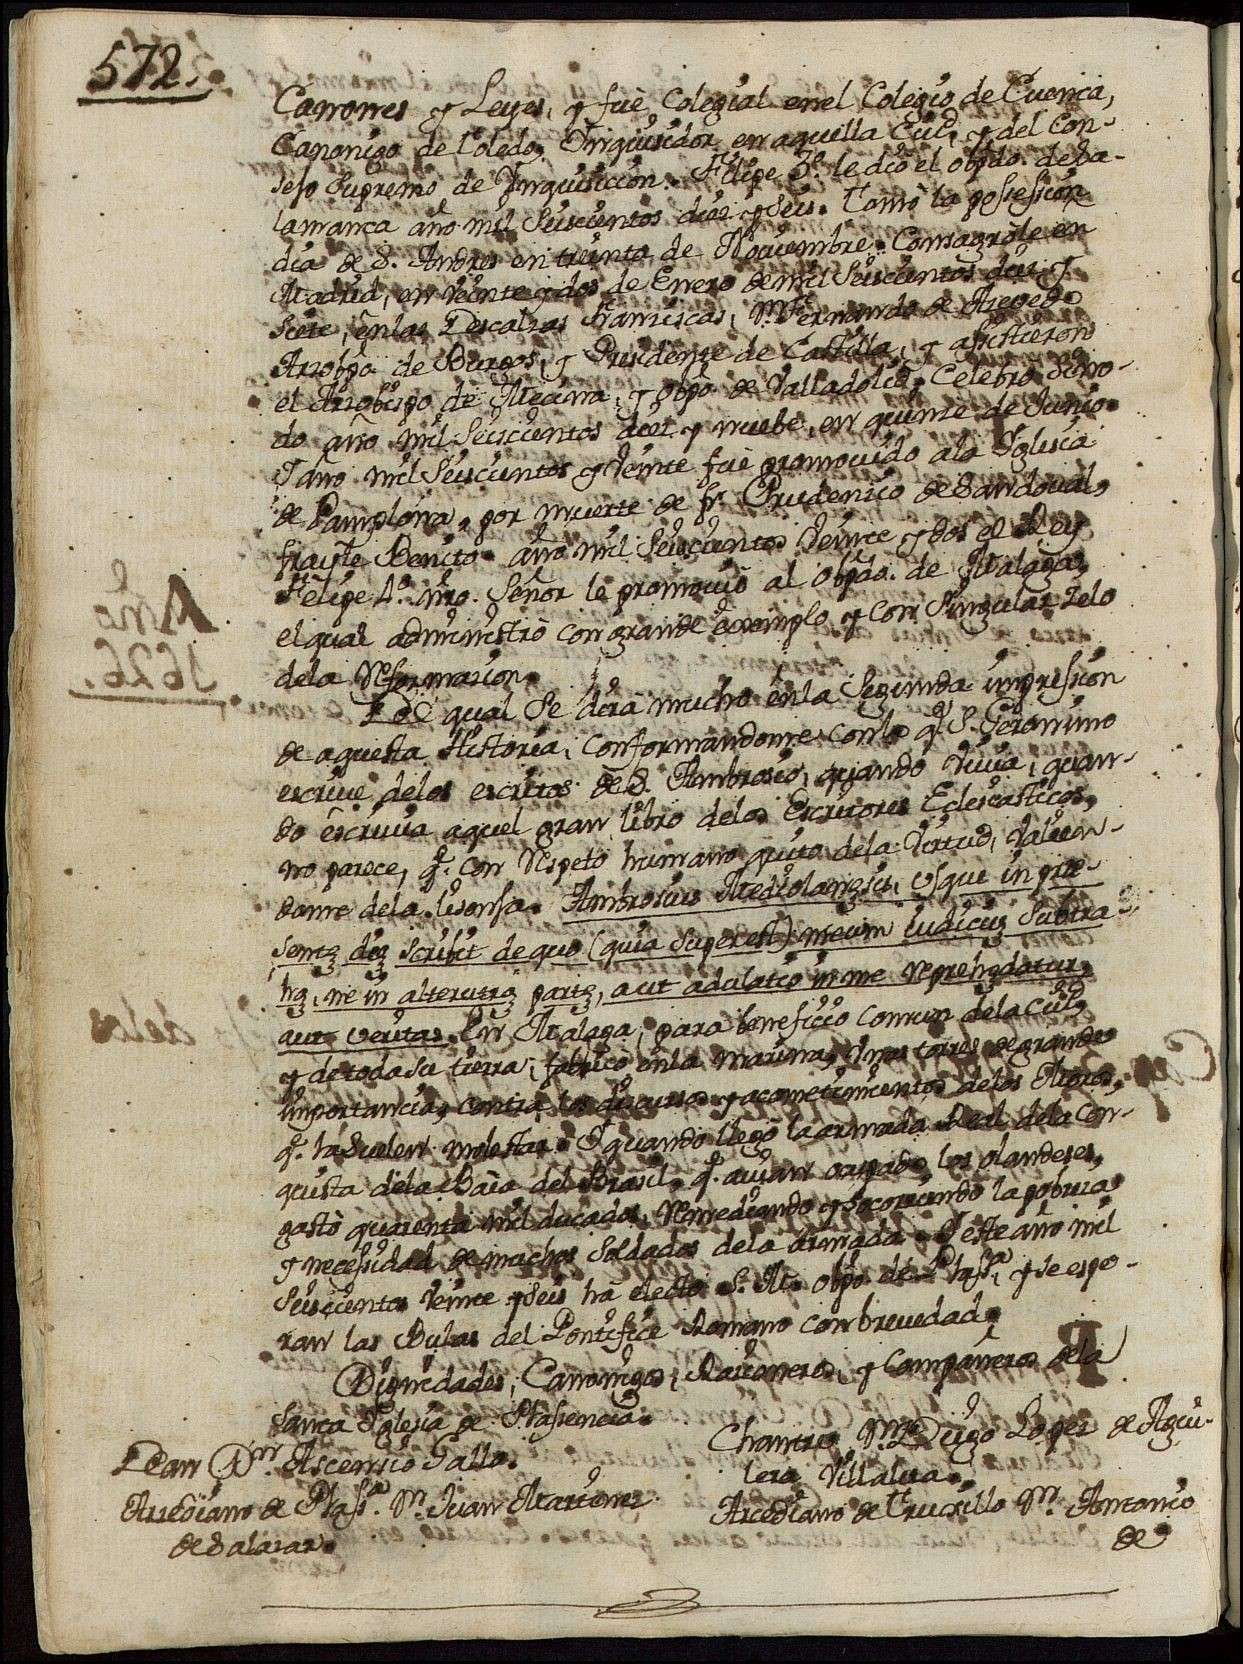 572.
Canones y Leyes, y fuè Colegial en el Colegio de Cuenca,
Canonigo de Toledo, Inquisidor en aquella Ciud, y del Con-
sejo Supremo de Inquisicion. Felipe 3º. le diò el obpdo. de Sa-
lamanca año mil Seiscientos diez y Seis. Tomò la possession
dia de S. Andres en treinta de Nouiembre. Consagròle en
Madrid, en veinte y dos de Enero de mil Seiscientos diez y
Siete, en las Descalzas Franciscas, Dn. Fernando de Azevedo
Arzobpo de Burgos, y Presidente de Castilla, y assistieron
el Arzobispo de Mecina, y obpo de Valladolid. Celebrò Sino-
do año mil Seiscientos diez y nuebe, en quinze de Junio.
Y año mil Seiscientos y veinte fuè promouido a la Iglesia
de Pamplona, por muerte de fr. Prudencio de Sandoual,
frayle Benito. año mil Seiscientos veinte y dos el Rey
Felipe 4º. nro. Señor le promouiò al obpdo. de Malaga,
el qual administrò con grande exemplo y con Singular zelo
de la Reformacion.
Lo qual se dirà mucho en la Segunda impression
de aquesta Historia, conformandome con lo q. S. Geronimo
escriue de los escritos de S. Ambrosio, quando viuia, quan-
do escriuia aquel gran libro de los Escritores Eclesiasticos,
no parece, q. con respeto humano quito de la virtud, valien-
dome de la lisonja. Ambrosius Mediolanesis, Usque in præ-
sentē diē scribit de quo (quia superest) meum iudiciū Subtra-
hā, ne in alterutrā partē, aut adulatio in me reprehēdatur,
aut veritas. En Malaga, para beneficio comun de la Ciud,
y de toda su tierra, fabricò en la marina, Unas torres de grande
importancia, contra los discursos y acometimientos de los Moros,
q. la suelen molestar. Y quando llegò la armada Real de la Con-
quista de la Baìa del Brasil, q. auian ocupado los olandeses,
gastò quarenta mil ducados, Remediando y socorriendo la pobreza
y necessidad de muchos Soldados de la armada. Y este año mil
Seiscientos veinte y seis hà electo S. M. obpo de Plassa, y se espe-
ran las Bulas del Pontifice Romano con breuedad.
Dignidades, Canonigos, Racioneros, y Compañeros de la
Santa Iglesia de Plasencia.
Dean Dn. Ascencio Gallo.
Arcediano de Plassa. Dn. Juan Martinez
de Salazar.
Chantre Dn. Diego Lopez de Agui-
lera Villalua.
Arcediano de Truxillo Dn. Antonio
de